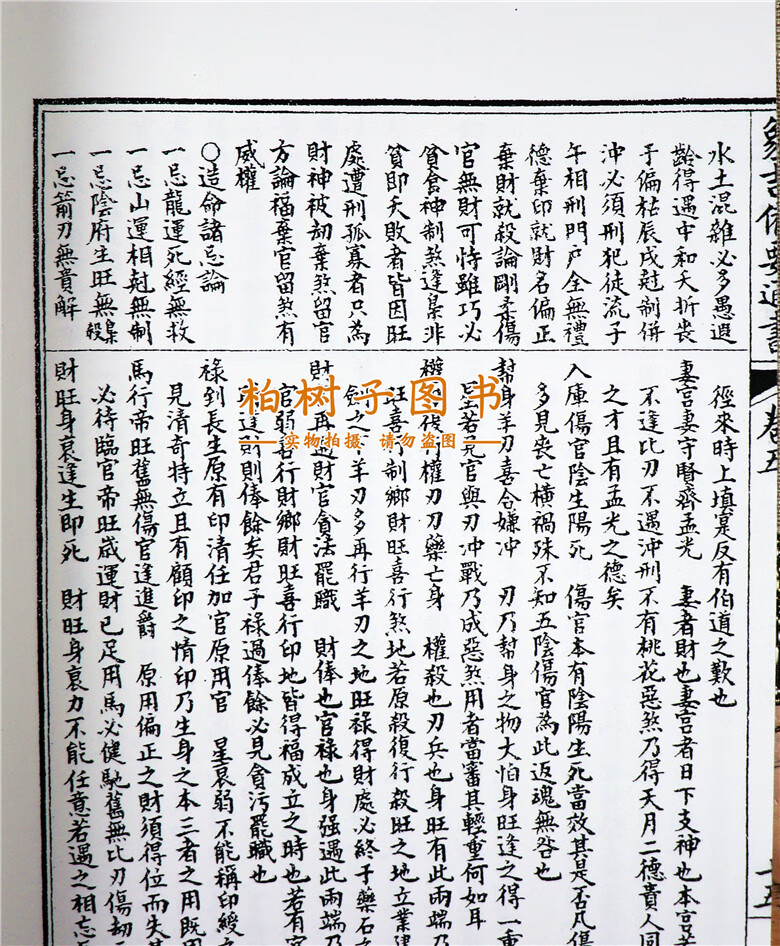 水土混雜必多愚迍
齡得遇中和夭折喪
子偏枯辰戌尅制併
沖必須刑犯徒流子
午相刑門戶全無禮
德棄印就財名偏正
棄財就殺論剛柔傷
官無財可恃雖巧必
貧食神制煞逢梟非
貧即夭敗者皆因旺
處遭刑孤寡者只為
財神被刧棄煞留官
方論福棄官留煞有
威權
○造命諸忌論
一忌龍運死經無救
一忌山運相尅無制
一忌陰府生旺無梟殺
一忌箭刃無貴解
徑來時上填寔反有伯道之歎也
妻宮妻守賢齊孟光 妻者財也妻宮者日下支神也本宮
不逢比刃不遇沖刑不有桃花惡煞乃得天月二德貴人同
之才且有孟光之德矣
入庫傷官陰生陽死 傷官本有陰陽生死當效其是否凡傷
多見喪亡橫禍殊不知五陰傷官為此返魂無咎也
幫身羊刃喜合嫌沖 刃乃幫身之物大怕身旺逢之得一重
星若見官與刃沖戰乃成惡煞用者當審其輕重何如耳
行權刃刃藥亡身 權殺也刃兵也身旺有此兩端乃
旺喜行制鄉財旺喜行煞地若原殺復行殺旺之地立業建
羊刃多再行羊刃之地旺祿得財處必終子藥石之
財官貪法罷職 財俸也官祿也身强遇此兩端乃
官弱喜行財鄉財旺喜行印地皆得福成立之時也若有官
逢財則俸餘矣君子祿過俸餘必見貪污罷職也
祿到長生原有印清任加官原用官 星衰弱不能稱印綬之
見清奇特立且有顧印之情印乃生身之本三者之用既用
馬行帝旺舊無傷官逢進爵 原用偏正之財須得位而失其
必待臨官帝旺歲運財巳足用馬必健馳舊無比刃傷刧
財旺身衰逢生即死 財旺身衰力不能任意若遇之相忘
卷五
柏树子图书
实物拍摄 请勿盗图